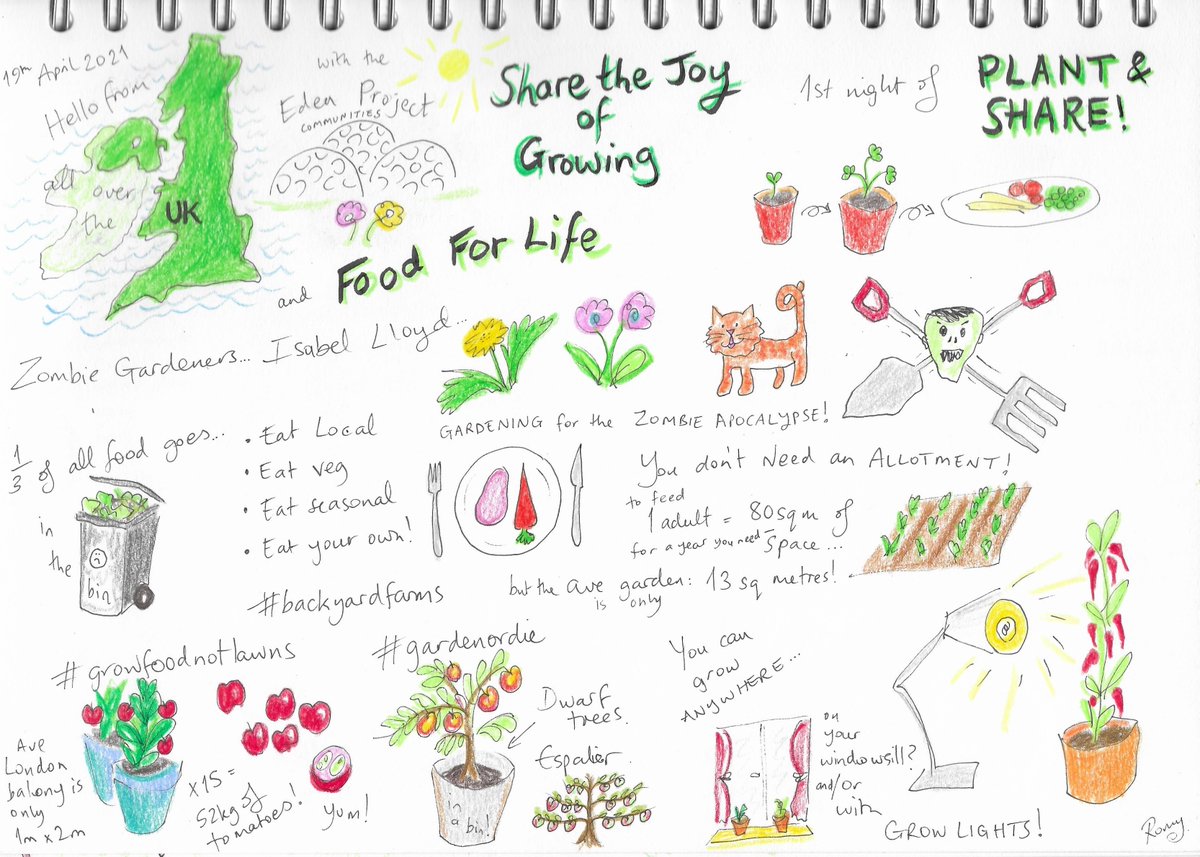 19th April 2021
Hello from
all over
the
UK
with the
Eden Project
COMMUNITIES
Share the Joy
of
Growing
1st night of
PLANT &
SHARE!
and
Food For Life
Zombie Gardeners... Isabel Lloyd...
GARDENING for the ZOMBIE APOCALYPSE!
1/3 of all food goes...
in
the
bin
• Eat Local
• Eat veg
• Eat seasonal
• Eat your own!
#backyardfarms
You don't Need an ALLOTMENT!
to feed
1 adult = 80sqm of
for a year you need space...
but the ave garden: 13 sq metres!
is only
#growfoodnotlawns
#gardenordie
Ave
London
balony is
only
1m x 2m
x 15 =
52kg of
tomatoes!
Yum!
in
a bin!
Dwarf
trees.
Espalier
You can
grow
ANYWHERE...
on
your
windowsill?
and/or
with
GROW LIGHTS!
Romy